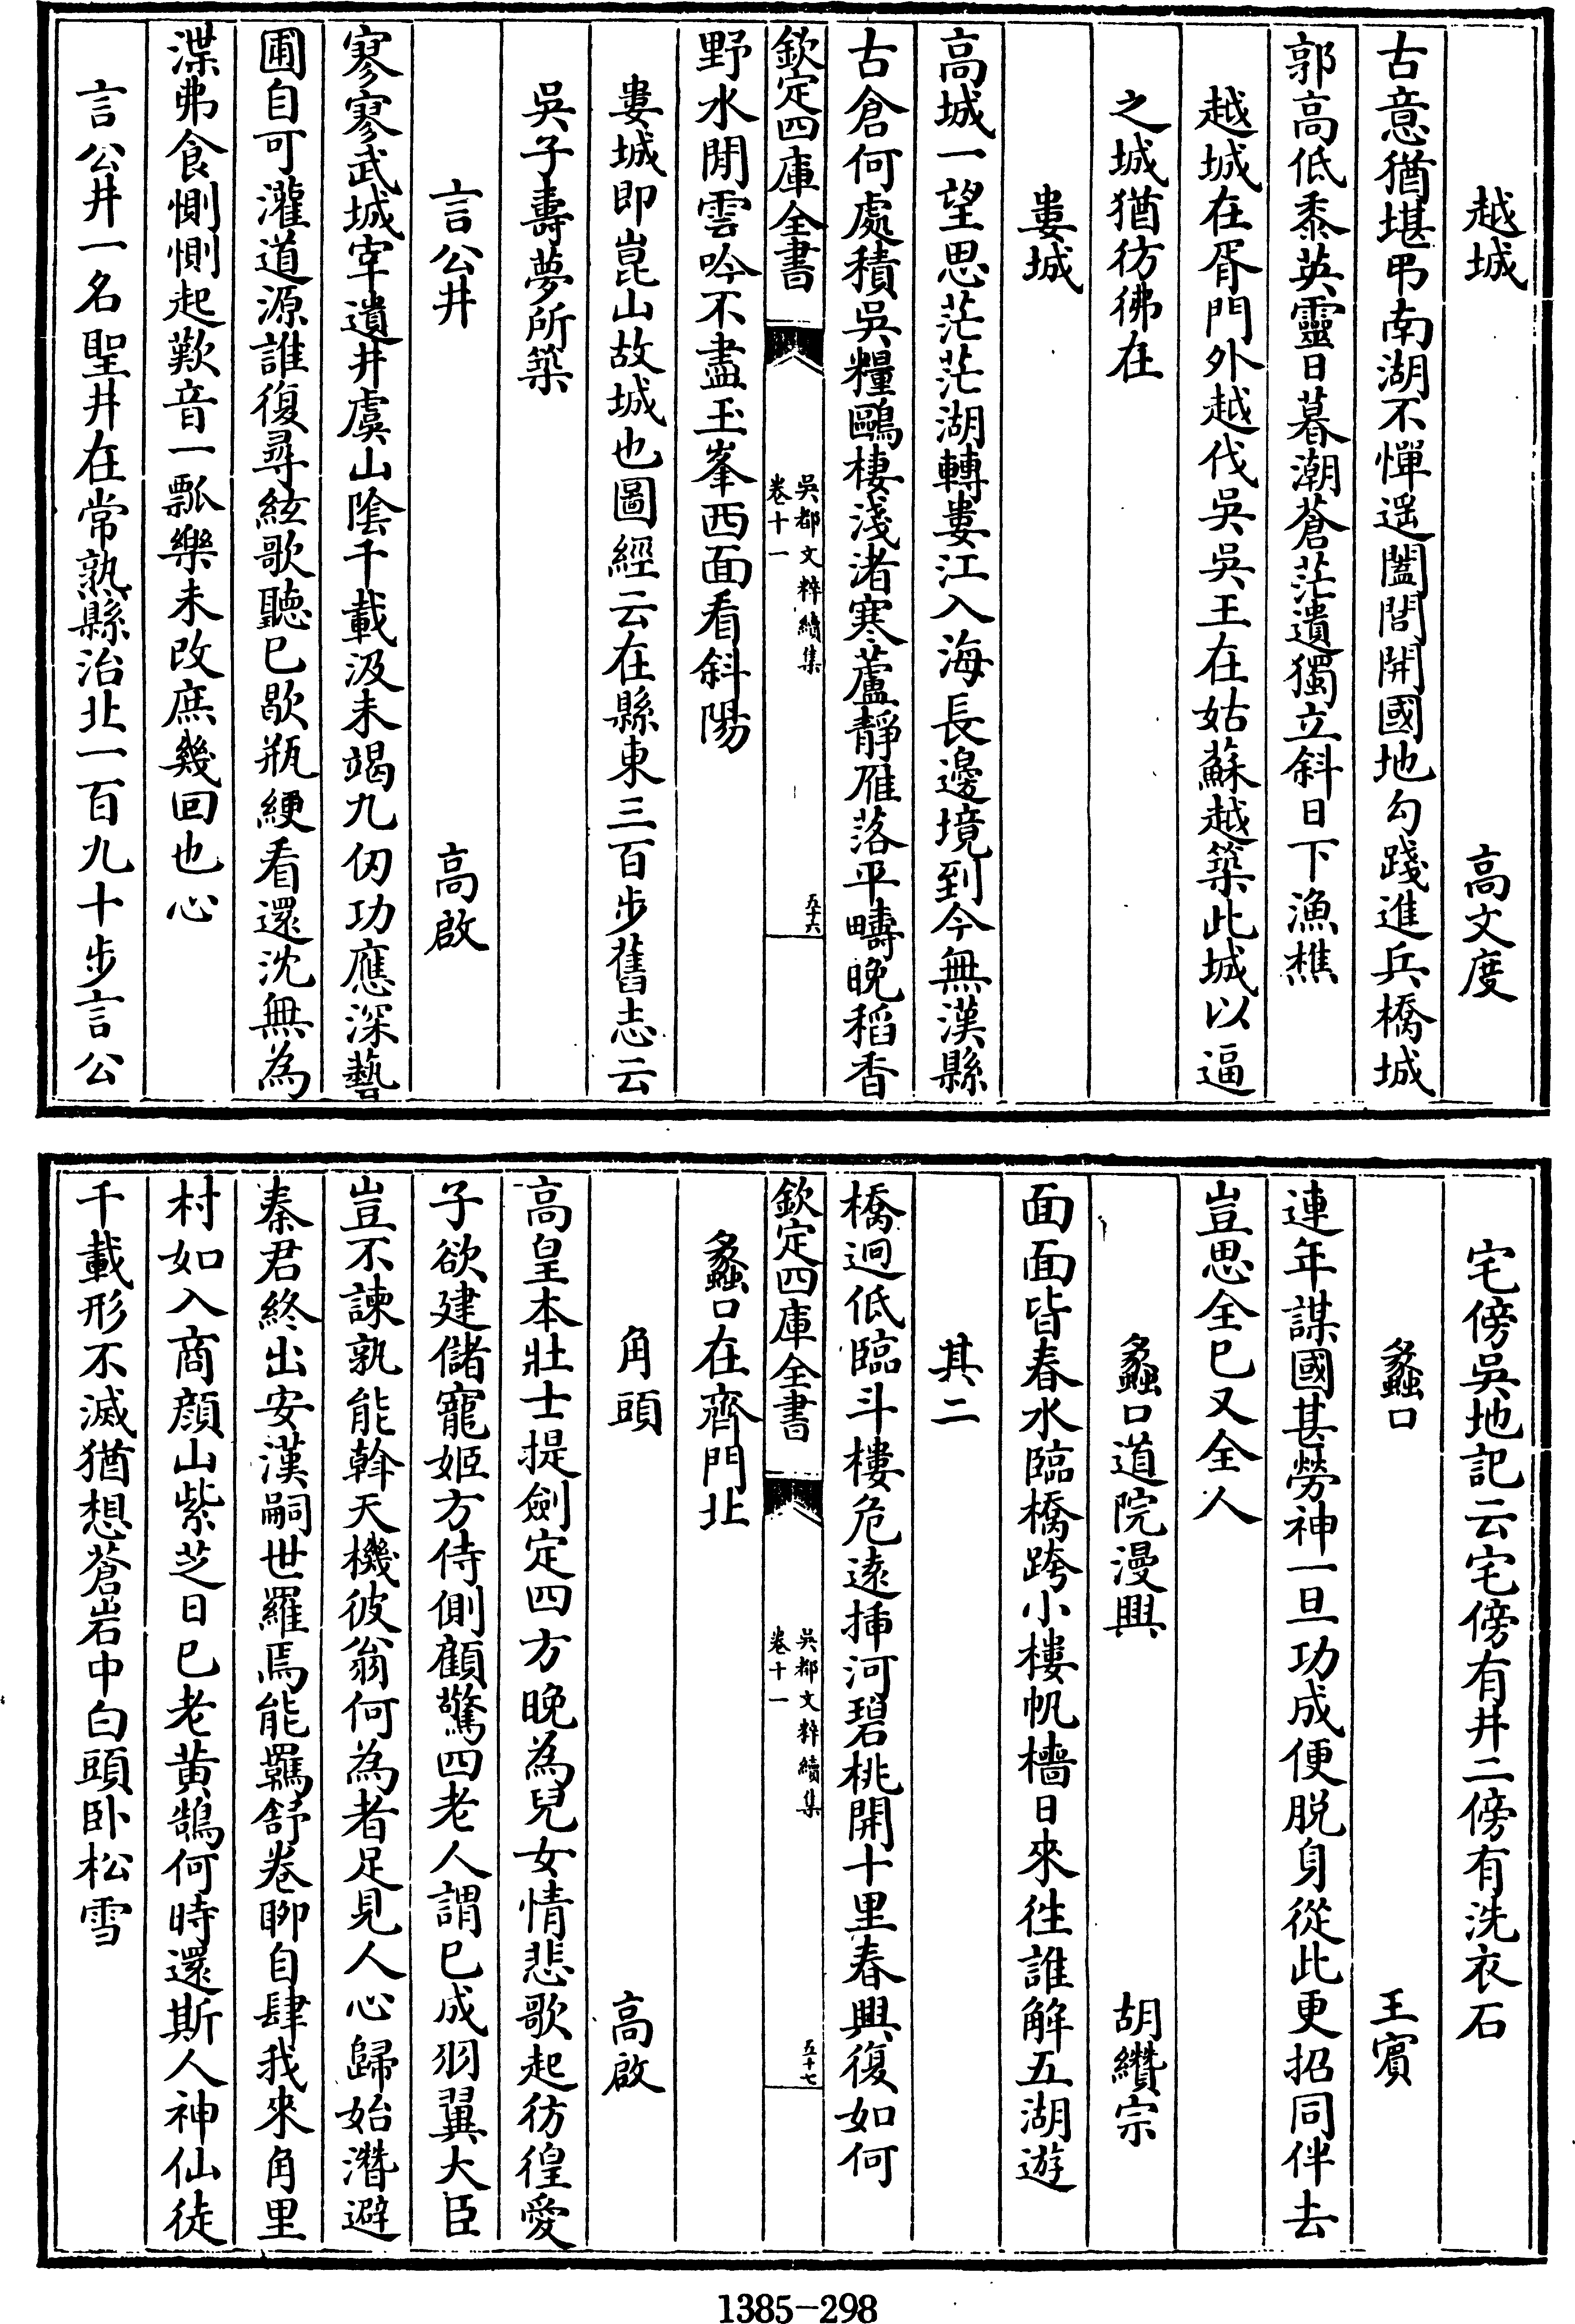 越城　高文度
古意猶堪弔南湖不憚遥闔閭開國地勾踐進兵橋城
郭高低黍英靈日暮潮蒼茫遺獨立斜日下漁樵
越城在胥門外越伐吳吳王在姑蘇越築此城以逼
之城猶彷彿在
婁城
高城一望思茫茫湖轉婁江入海長邊境到今無漢縣
古倉何處積吳糧鷗棲淺渚寒蘆靜雁落平疇晚稻香
欽定四庫全書　吳都文粹續集 卷十一　五十六
野水閒雲吟不盡玉峯西面看斜陽
婁城即崑山故城也圖經云在縣東三百步舊志云
吳子壽夢所築
言公井　高啟
寥寥武城宰遺井虞山陰千載汲未竭九仞功應深藝
圃自可灌道源誰復尋絃歌聽已歇瓶綆看還沈無為
渫弗食惻惻起歎音一瓢樂未改庶幾回也心
言公井一名聖井在常熟縣治北一百九十步言公
宅傍吳地記云宅傍有井二傍有洗衣石
蠡口　王賓
連年謀國甚勞神一旦功成便脱身從此更招同伴去
豈思全已又全人
蠡口道院漫興　胡纘宗
面面皆春水臨橋跨小樓帆檣日來徃誰解五湖遊
其二
橋迥低臨斗樓危遠揷河碧桃開十里春興復如何
欽定四庫全書　吳都文粹續集 卷十一　五十七
蠡口在齊門北
角頭　高啟
高皇本壯士提劍定四方晚為兒女情悲歌起彷徨愛
子欲建儲寵姬方侍側顧驚四老人謂已成羽翼大臣
豈不諫孰能斡天機彼翁何為者足見人心歸始潛避
秦君終出安漢嗣世羅焉能羈舒卷聊自肆我來角里
村如入商顔山紫芝日已老黄鵠何時還斯人神仙徒
千載形不滅猶想蒼岩中白頭卧松雪
1385-298